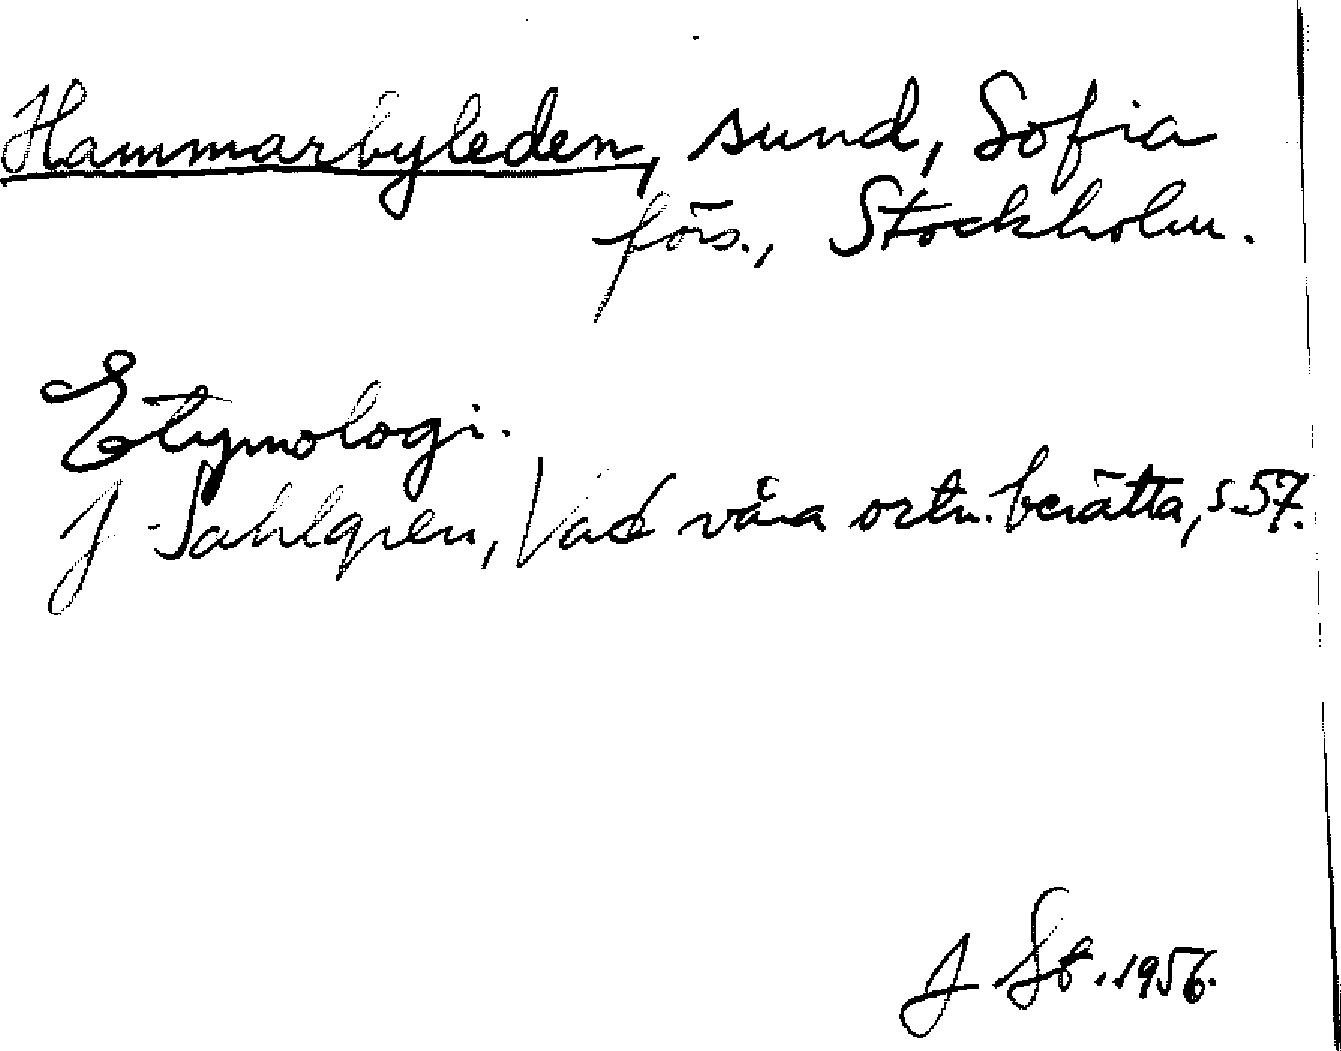 Hammarbyleden, sund, Sofia
förs., Stockholm.
Etymologi.
J Sahlgren, Vad våra ortn. berätta, s. 57.
J. St. 1956.